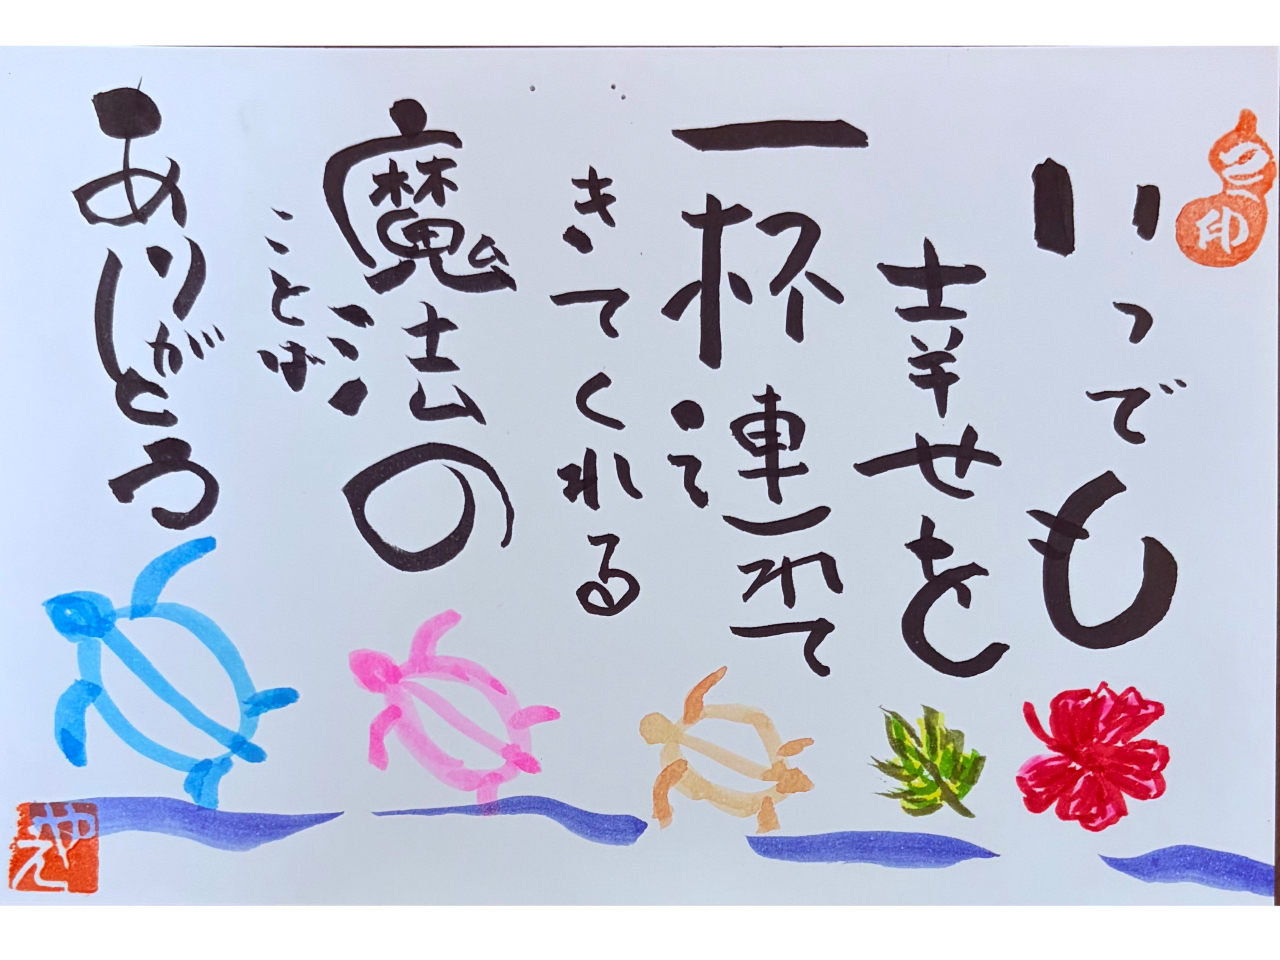 いつでも
幸せを
一杯連れて
きてくれる
魔法の
ことば
ありがとう
印
やえ